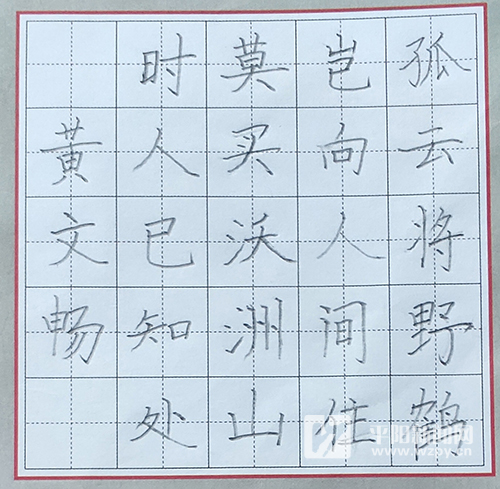 孤云将野鹤
岂向人间住
莫买沃洲山
时人已知处
黄文畅
www.wzpy.cn